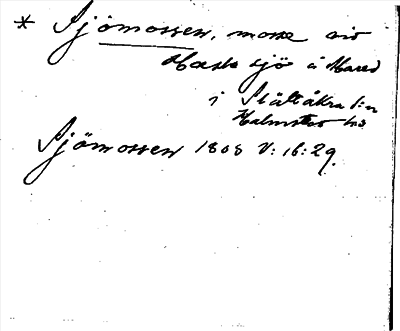 * Sjömossen, mosse vid
sjö å Mared
i Slättåkra s:n
Halmstad hd
Sjömossen 1808 V:16:29.